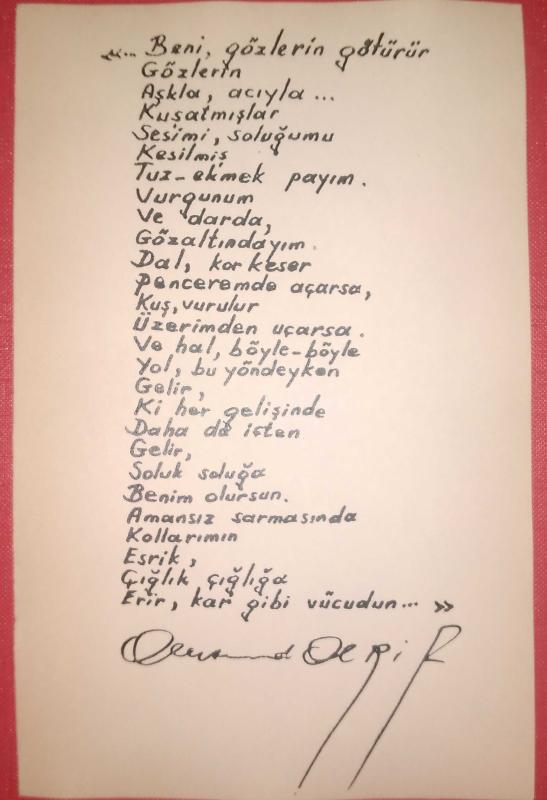 «... Beni, gözlerin götürür
Gözlerin
Aşkla, acıyla ...
Kuşatmışlar
Sesimi, soluğumu
Kesilmiş
Tuz-ekmek payım.
Vurgunum
Ve darda,
Gözaltındayım.
Dal, kor keser
Penceremde açarsa,
Kuş, vurulur
Üzerimden uçarsa.
Ve hal, böyle-böyle
Yol, bu yöndeyken
Gelir,
Ki her gelişinde
Daha da içten
Gelir,
Soluk soluğa
Benim olursun.
Amansız sarmasında
Kollarımın
Esrik,
Çığlık çığlığa
Erir, kar gibi vücudun... »